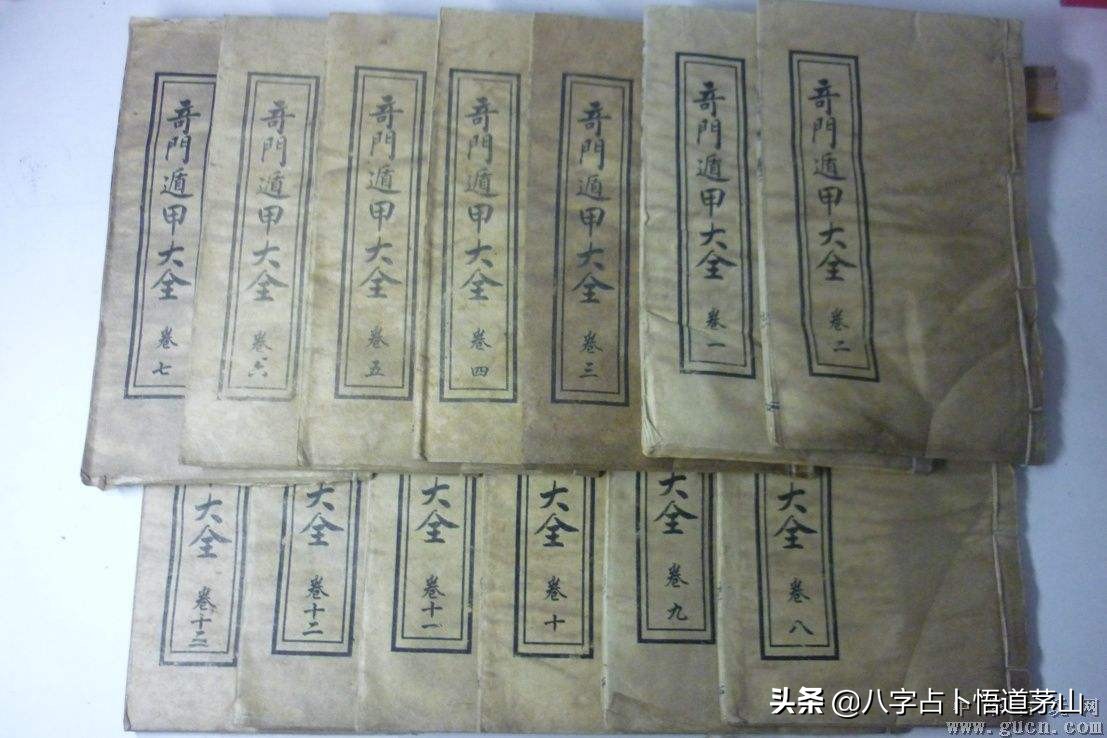 奇門遁甲大全 卷七
奇門遁甲大全 卷六
奇門遁甲大全 卷五
奇門遁甲大全 卷四
奇門遁甲大全 卷三
奇門遁甲大全 卷一
奇門遁甲大全 卷二
大全 卷十三
大全 卷十二
大全 卷十一
大全 卷十
大全 卷九
大全 卷八
头条 @八字占卜悟道茅山
网
www.gucn.com